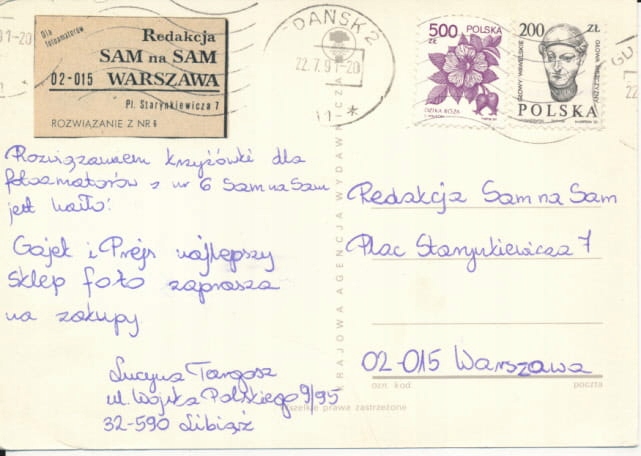 Dla
fotoamatorów
Redakcja
SAM na SAM
02-015 WARSZAWA
Pl. Starynkiewicza 7
ROZWIĄZANIE Z NR 6
DAŃSK 2
22.7.91-20
500
ZŁ
POLSKA
DZIKA RÓŻA
200 ZŁ
GŁOWY WAWELSKIE
GŁOWA MĘŻCZYZNY
POLSKA
Rozwiązaniem krzyżówki dla
fotoamatorów z nr 6 Sam na Sam
jest hasło:
Gajek i Prejs najlepszy
sklep foto zaprasza
na zakupy
Lucyna Targosz
ul. Wojska Polskiego 9/95
32-590 Libiąż
KRAJOWA AGENCJA WYDAWNICZA
Redakcja Sam na Sam
Plac Starynkiewicza 7
02-015 Warszawa
ozn. kod poczta
wszelkie prawa zastrzeżone